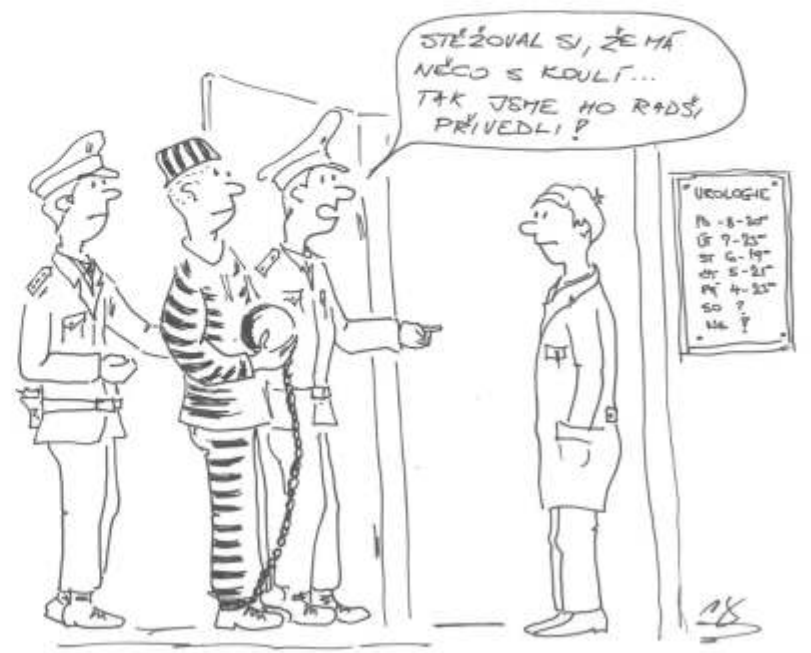 STĚŽOVAL SI, ŽE MÁ
NĚCO S KOULÍ...
TAK JSME HO RADŠI
PŘIVEDLI!
UROLOGIE
PO - 8-20°°
ÚT 7-23°°
ST 6-19°°
ČT 5-21°°
PÁ 4-23°°
SO ?
NE ?